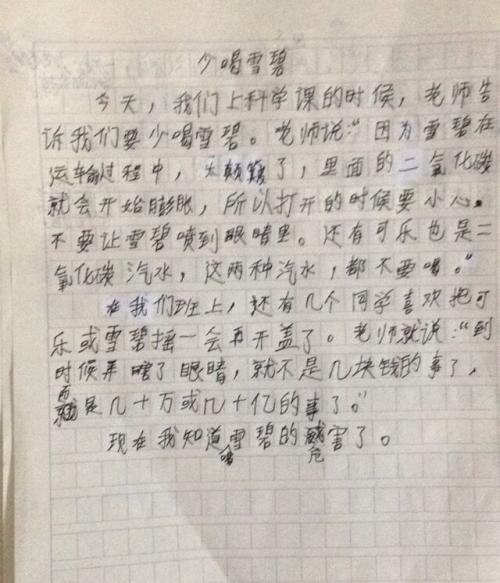 少喝雪碧
今天，我们上科学课的时候，老师告
诉我们要少喝雪碧。老师说："因为雪碧在
运输过程中，太颠簸了，里面的二氧化碳
就会开始膨胀，所以打开的时候要小心。
不要让雪碧喷到眼睛里。还有可乐也是二
氧化碳汽水，这两种汽水，都不要喝。"
在我们班上，还有几个同学喜欢把可
乐或雪碧摇一会再开盖了。老师就说："到
时候弄瞎了眼睛，就不是几块钱的事了，
而是几十万或几十亿的事了。"
现在我知道喝雪碧的危害了。